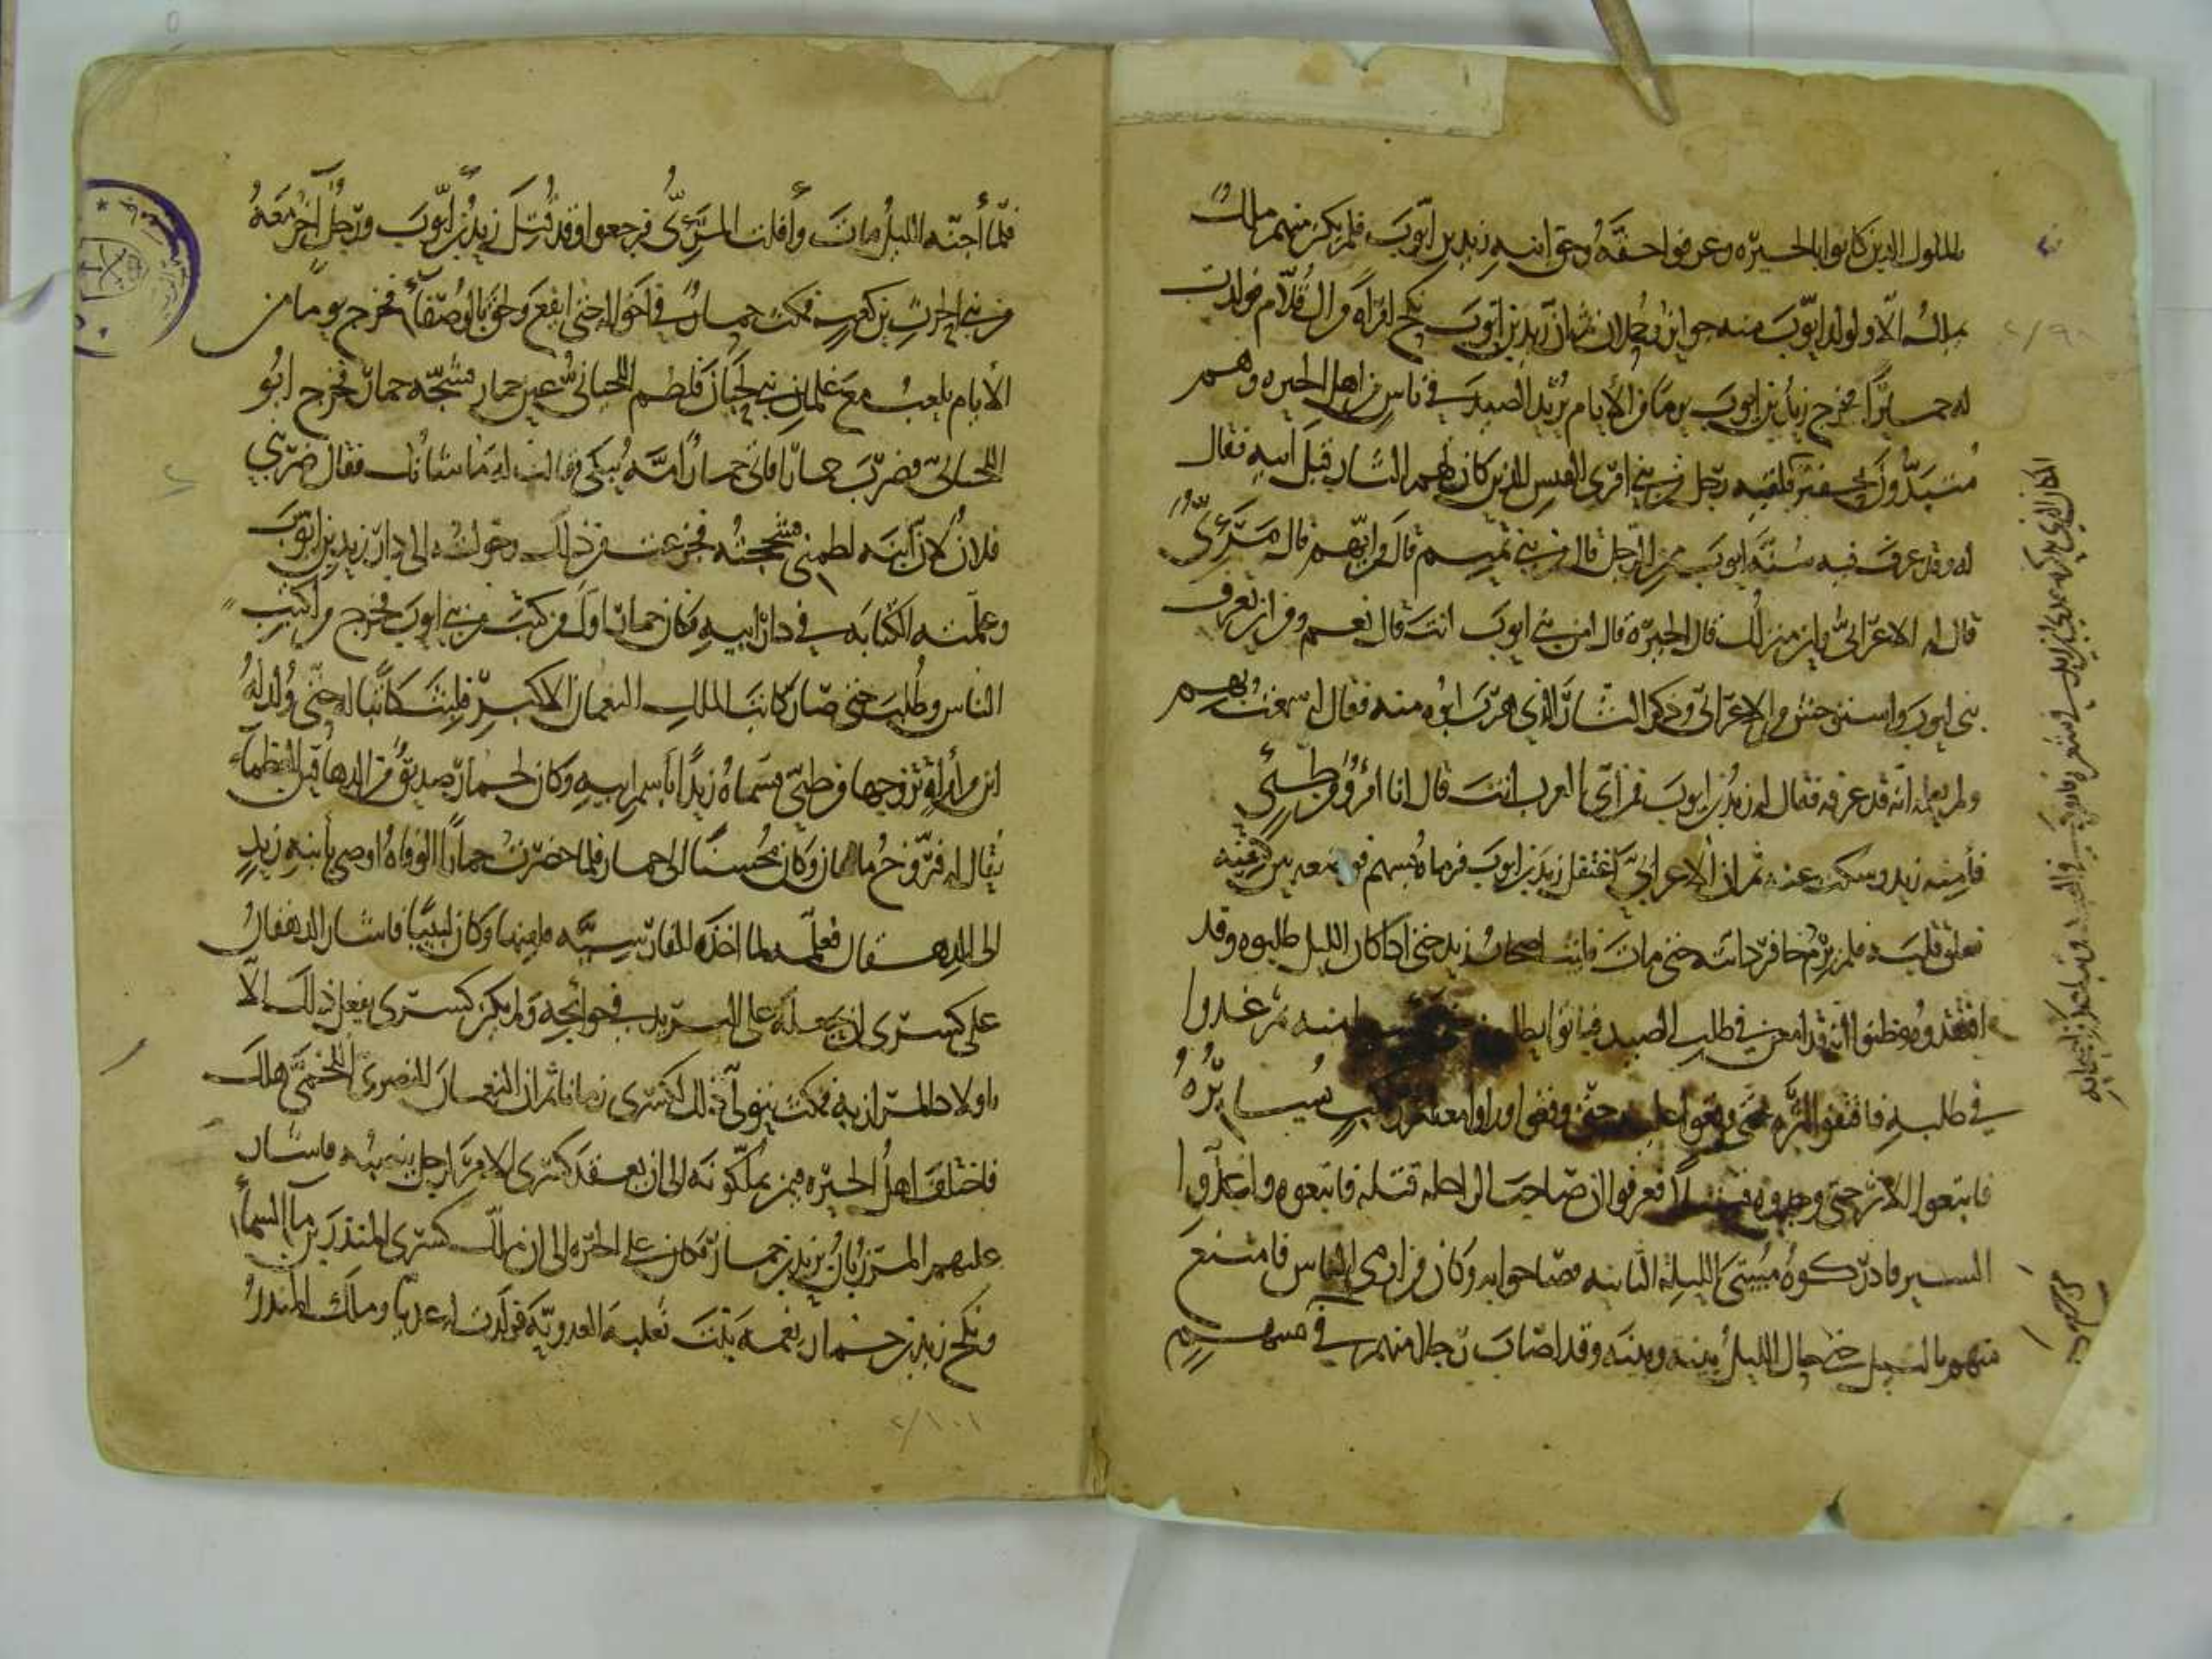 بالملوك الذين كانوا بالحيرة وعرفوا حقه وحق ابنه زيد بن ايوب فلم يكن منهم ملك
يملك الا ولولد ايوب منه جوائز وحملان ثم ان زيد بن ايوب نكح امرأة من ال قلام فولدت
له حمارا فخرج زيد بن ايوب يوما من الايام يريد الصيد في ناس من اهل الحيرة وهم
منتدون بحفير فلقيه رجل من بني امرئ القيس الذين كان لهم الثار قبل ابيه فقال
له وقد عرف فيه شبه ايوب ممن الرجل قال من بني تميم قال من ايهم قال مرئي
قال له الاعرابي واين منزلك قال الحيرة قال امن بني ايوب انت قال نعم ومن اين تعرف
بني ايوب واستوحش من الاعرابي وذكر الثار الذي هرب ابوه منه فقال له سمعت بهم
ولم يعلمه انه قد عرفه فقال له زيد بن ايوب فمن اي العرب انت قال انا امرؤ من طيئ
فأمنه زيد وسكت عنه ثم ان الاعرابي اغتفل زيد بن ايوب فرماه بسهم فوضعه بين كتفيه
ففلق قلبه فلم يرم حافر دابته حتى مات فلبث اصحاب زيد حتى اذا كان الليل طلبوه وقد
افتقدوه وظنوا انه قد امعن في طلب الصيد فباتوا يطلبونه حتى يئسوا منه ثم غدوا
في طلبه فاقتفوا اثره حتى وقفوا عليه ورأوا معه اثر راكب يسايره
فاتبعوا الاثر حتى وجدوه قتيلا فعرفوا ان صاحب الراحلة قتله فاتبعوه واغذوا
السير فادركوه مسي الليلة الثانية فصاحوا به وكان من ارمى الناس فامتنع
منهم بالنبل حتى حال الليل بينهم وبينه وقد اصاب رجلا منهم في
فلما أجنه الليل مات وأفلت المرئي فرجعوا وقد قتل زيد بن ايوب ورجل آخر معه
من بني الحرث بن كعب فمكث حمار في اخواله حتى ايفع ولحق بالوصفاء فخرج يوما من
الايام يلعب مع غلمان بني لحيان فلطم اللحياني عين حمار فشجه حمار فخرج ابو
اللحياني فضرب حمارا فاتى حمار امه يبكي فقالت له ما شانك فقال ضربني
فلان لان ابنه لطمني فشججته فجزعت من ذلك وحولته الى دار زيد بن ايوب
وعلمته الكتابة في دار ابيه وكان حمار اول من كتب من بني ايوب فخرج من اكتب
الناس وطلب حتى صار كاتب الملك النعمان الاكبر فلبث كاتبا له حتى ولد له
ابن من امرأة تزوجها من طيئ فسماه زيدا باسم ابيه وكان لحمار صديق من الدهاقين العظماء
يقال له فروخ ماهان وكان محسنا الى حمار فلما حضرت حمارا الوفاة اوصى بابنه زيد
الى الدهقان فعلمه لما اخذه الفارسية فلقنها وكان لبيبا فاشار الدهقان
على كسرى ان يجعله على البريد في حوائجه ولم يكن كسرى يفعل ذلك الا
باولاد المرازبة فمكث يتولى ذلك لكسرى زمانا ثم ان النعمان النصري اللخمي هلك
فاختلف اهل الحيرة فيمن يملكونه الى ان يعقد كسرى الامر لرجل ينصبه فاشار
عليهم المرزبان بزيد بن حمار فكان على الحيرة الى ان ملك كسرى المنذر بن مآء السماء
ونكح زيد بن حمار نعمة بنت ثعلبة العدوية فولدت له عديا وملك المنذر
٢/١٠١